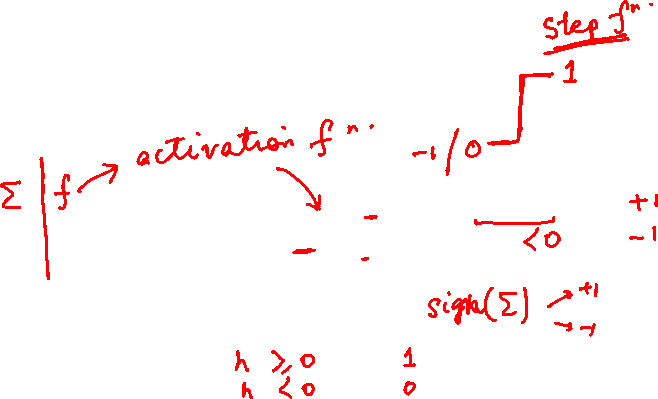 step fⁿ.
1
-1/0
activation fⁿ.
Σ | f
+1
<0 -1
sign(Σ) → +1
→ -1
h ≥ 0 1
h < 0 0